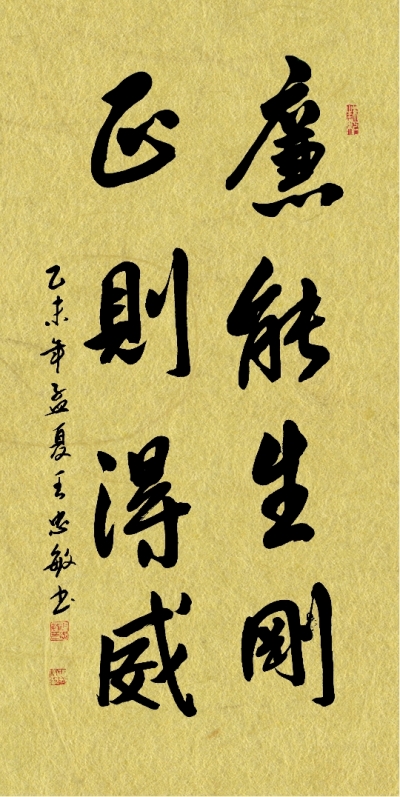 廉能生剛
正則得威
乙未年孟夏王忠敏书